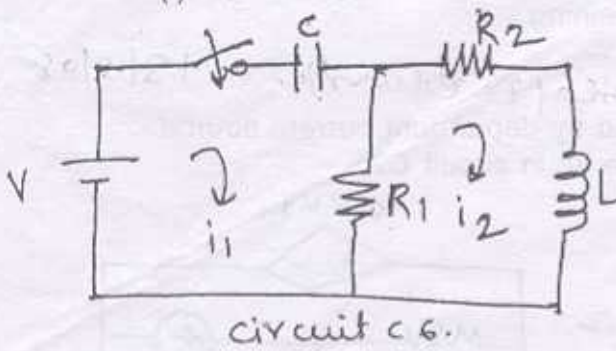 C
R2
V
i1
R1
i2
L
circuit c6.